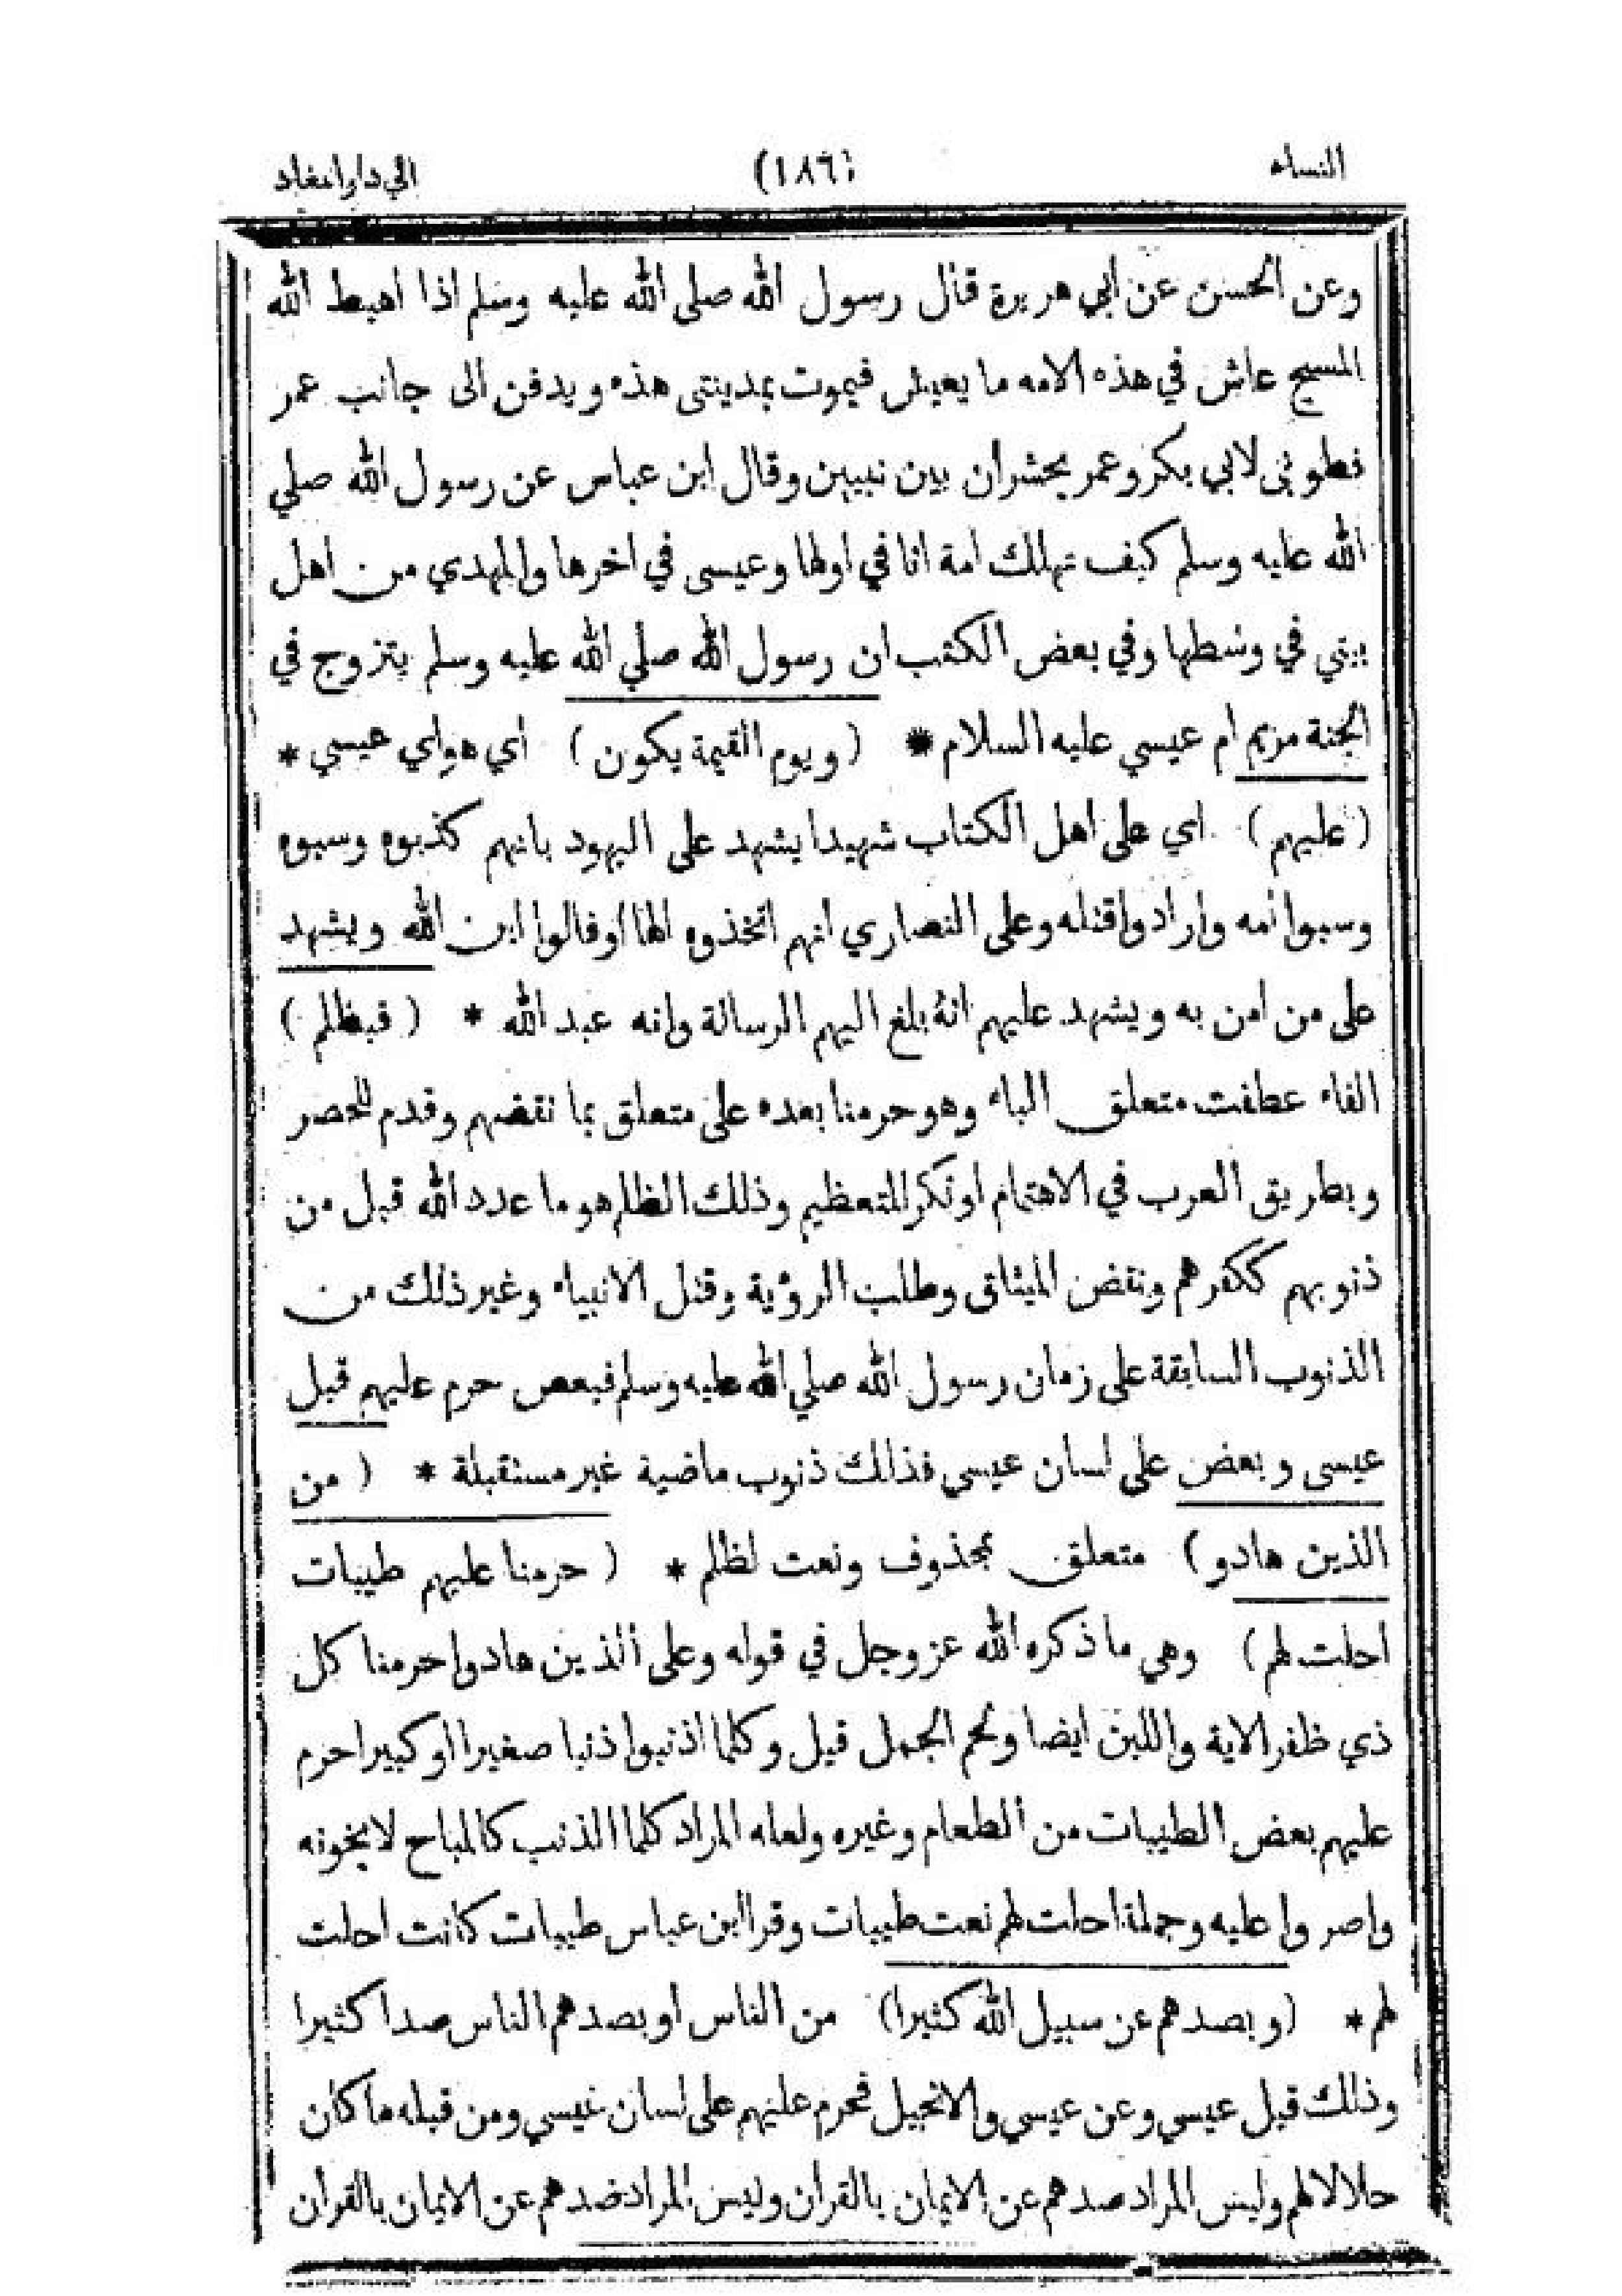 النساء (١٨٦) الي دار المعاد
وعن الحسن عن أبي هريرة قال رسول الله صلى الله عليه وسلم اذا أهبط الله
المسيح عاش في هذه الامه ما يعيش فيموت بمدينتى هذه ويدفن الى جانب عمر
فطوبى لابي بكر وعمر يحشران بين نبيين وقال ابن عباس عن رسول الله صلي
الله عليه وسلم كيف تهلك امة انا في اولها وعيسى في اخرها والمهدي من أهل
بيتي في وسطها وفي بعض الكتب ان رسول الله صلي الله عليه وسلم يتزوج في
الجنة مريم ام عيسي عليه السلام * (ويوم القيمة يكون) أي هو اي عيسي *
(عليهم) اي على اهل الكتاب شهيدا يشهد على اليهود بانهم كذبوه وسبوه
وسبوا أمه وارادوا قتله وعلى النصاري انهم اتخذوه الها أو قالوا ابن الله ويشهد
على من امن به ويشهد عليهم انه بلغ اليهم الرسالة وانه عبد الله * (فبظلم)
الفاء عطفت متعلق الباء وهو حرمنا بعده على متعلق بما نقضهم وقدم للحصر
وبطريق العرب في الاهتمام او نكر للتعظيم وذلك الظلم هو ما عدد الله قبل من
ذنوبهم ككفرهم ونقض الميثاق وطلب الرؤية وقتل الانبياء وغير ذلك من
الذنوب السابقة على زمان رسول الله صلي الله عليه وسلم فبعض حرم عليهم قبل
عيسى وبعض على لسان عيسى فذالك ذنوب ماضية غير مستقبلة * (من
الذين هادو) متعلق بمحذوف ونعت لظلم * (حرمنا عليهم طيبات
أحلت لهم) وهي ما ذكره الله عز وجل في قوله وعلى الذين هادوا حرمنا كل
ذي ظفر الاية واللبن ايضا ولحم الجمل قيل وكلما اذنبوا ذنبا صغيرا او كبيرا حرم
عليهم بعض الطيبات من الطعام وغيره ولعله المراد كلما الذنب كالمباح لا يخونه
واصروا عليه وجملة احلت لهم نعت طيبات وقرا ابن عباس طيبات كانت احلت
لهم * (وبصدهم عن سبيل الله كثيرا) من الناس او بصدهم الناس صدا كثيرا
وذلك قبل عيسي وعن عيسي والانجيل فحرم عليهم على لسان عيسي ومن قبله ما كان
حلالا لهم وليس المراد صدهم عن الايمان بالقران وليس المراد صدهم عن الايمان بالقرأن